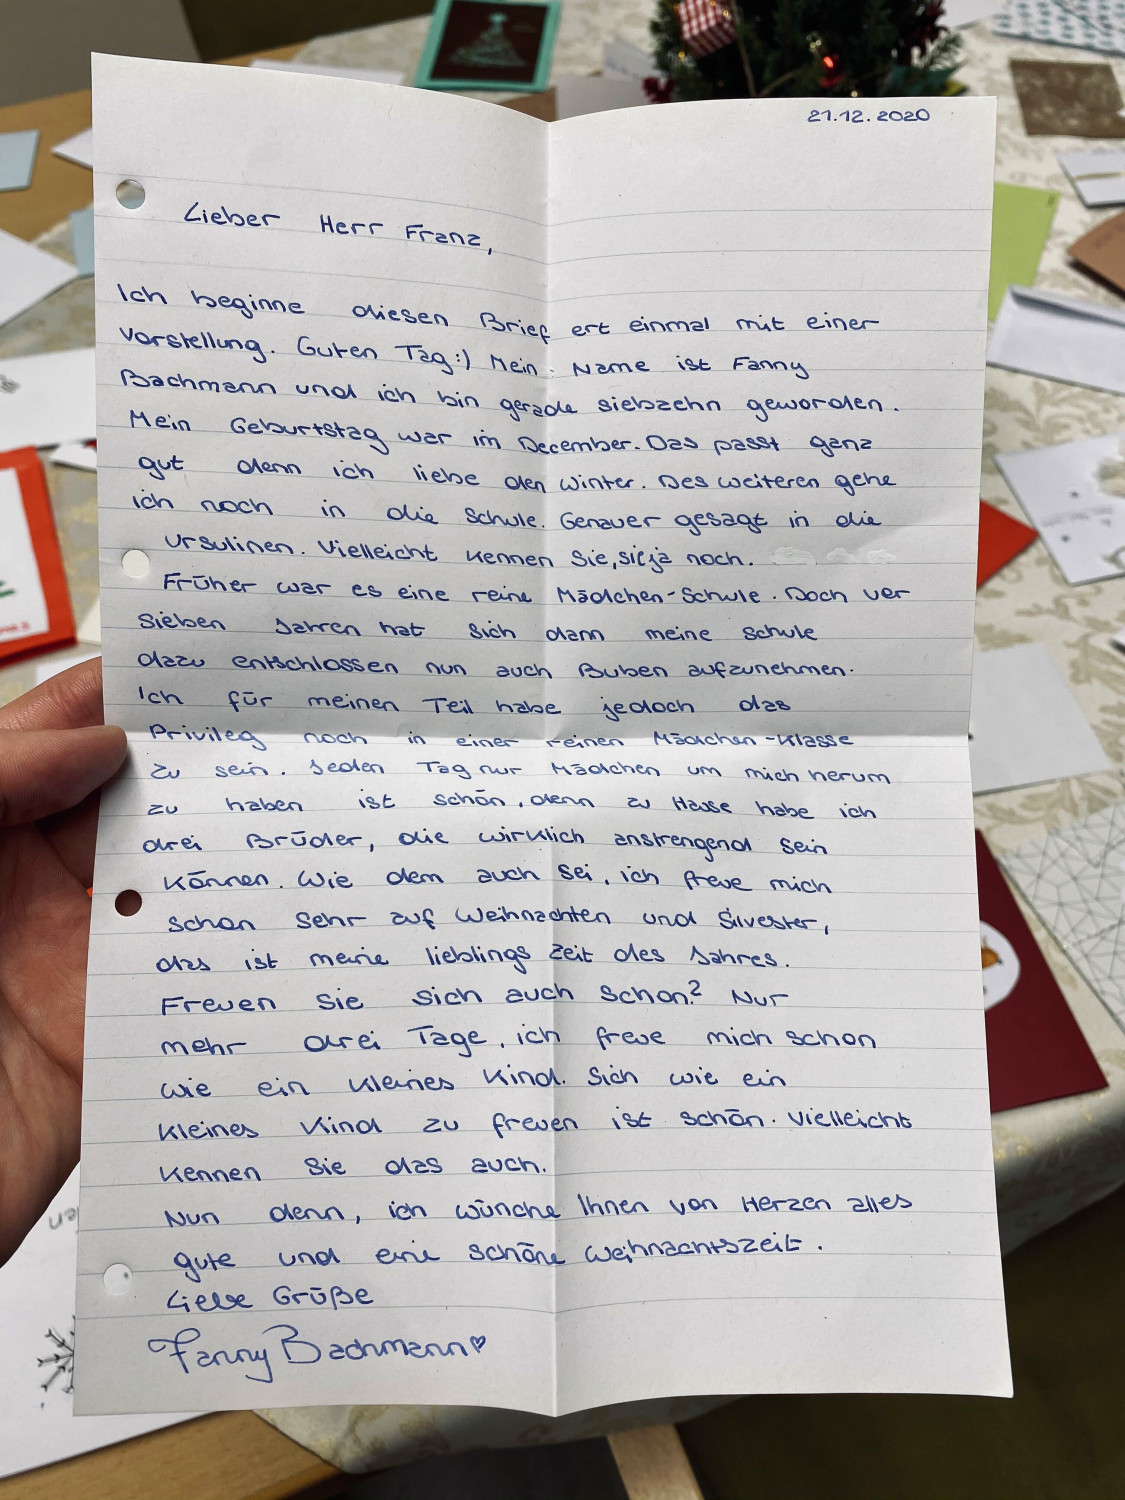 21.12.2020
Lieber Herr Franz,
Ich beginne diesen Brief ert einmal mit einer
Vorstellung. Guten Tag:) Mein Name ist Fanny
Bachmann und ich bin gerade siebzehn geworden.
Mein Geburtstag war im December. Das passt ganz
gut denn ich liebe den Winter. Des weiteren gehe
ich noch in die Schule. Genauer gesagt in die
Ursulinen. Vielleicht kennen Sie, sie ja noch.
Früher war es eine reine Mädchen-Schule. Doch vor
sieben Jahren hat sich dann meine Schule
dazu entschlossen nun auch Buben aufzunehmen.
Ich für meinen Teil habe jedoch das
Privileg noch in einer reinen Mädchen-Klasse
zu sein. Jeden Tag nur Mädchen um mich herum
zu haben ist schön, denn zu Hause habe ich
drei Brüder, die wirklich anstrengend sein
können. Wie dem auch sei, ich freue mich
schon sehr auf Weihnachten und Silvester,
das ist meine lieblings Zeit des Jahres.
Freuen Sie sich auch schon? Nur
mehr drei Tage, ich freue mich schon
wie ein kleines Kind. Sich wie ein
kleines Kind zu freuen ist schön. Vielleicht
kennen Sie das auch.
Nun denn, ich wünche Ihnen von Herzen alles
gute und eine schöne Weihnachtszeit.
Liebe Grüße
Fanny Bachmann♡